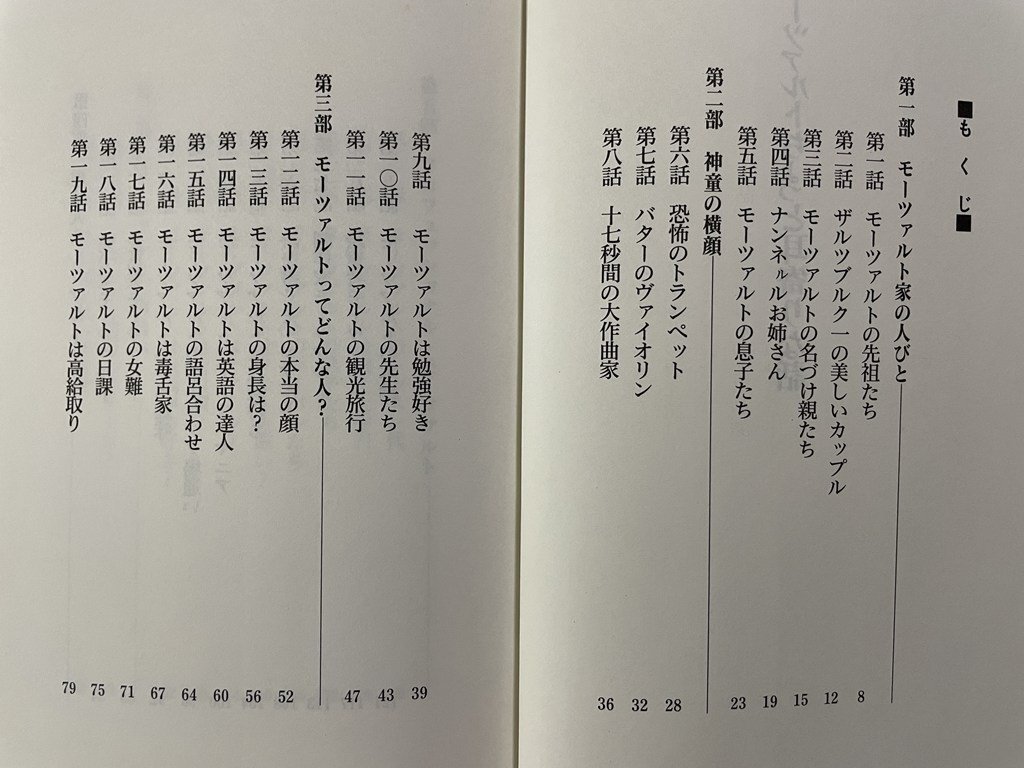 ■もくじ■
第一部 モーツァルト家の人びと
第一話 モーツァルトの先祖たち 8
第二話 ザルツブルク一の美しいカップル 12
第三話 モーツァルトの名づけ親たち 15
第四話 ナンネㇽルお姉さん 19
第五話 モーツァルトの息子たち 23
第二部 神童の横顔
第六話 恐怖のトランペット 28
第七話 バターのヴァイオリン 32
第八話 十七秒間の大作曲家 36
第九話 モーツァルトは勉強好き 39
第一〇話 モーツァルトの先生たち 43
第一一話 モーツァルトの観光旅行 47
第三部 モーツァルトってどんな人?
第一二話 モーツァルトの本当の顔 52
第一三話 モーツァルトの身長は? 56
第一四話 モーツァルトは英語の達人 60
第一五話 モーツァルトの語呂合わせ 64
第一六話 モーツァルトは毒舌家 67
第一七話 モーツァルトの女難 71
第一八話 モーツァルトの日課 75
第一九話 モーツァルトは高給取り 79